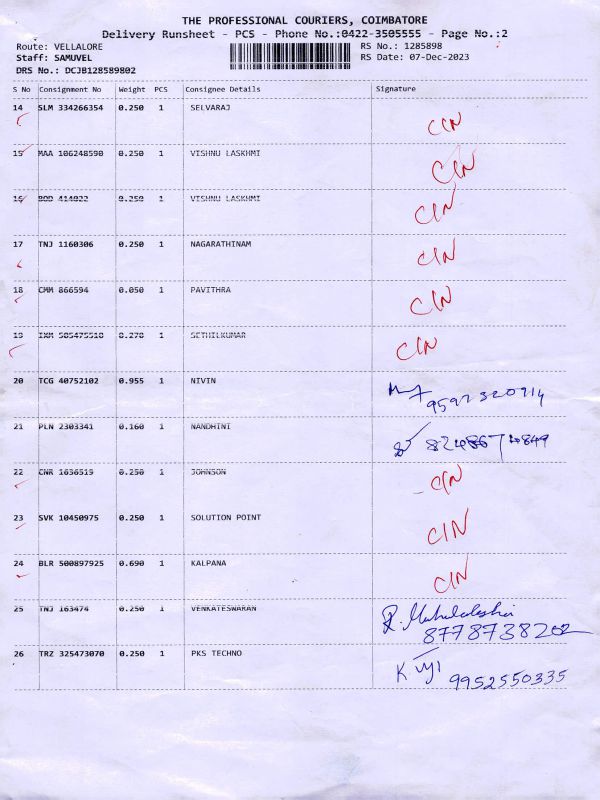 THE PROFESSIONAL COURIERS, COIMBATORE
Delivery Runsheet - PCS - Phone No.:0422-3505555 - Page No.:2
Route: VELLALORE RS No.: 1285898
Staff: SAMUVEL RS Date: 07-Dec-2023
DRS No.: DCJB128589802
S No Consignment No Weight PCS Consignee Details Signature
14 SLM 334266354 0.250 1 SELVARAJ CIN
15 MAA 106248590 0.250 1 VISHNU LASKHMI CIN
16 BOD 414022 0.250 1 VISHNU LASKHMI CIN
17 TNJ 1160306 0.250 1 NAGARATHINAM CIN
18 CMM 866594 0.050 1 PAVITHRA CIN
19 IXM 505475510 0.270 1 SETHILKUMAR CIN
20 TCG 40752102 0.955 1 NIVIN
21 PLN 2303341 0.160 1 NANDHINI
22 CNR 1036519 0.250 1 JOHNSON CIN
23 SVK 10450975 0.250 1 SOLUTION POINT CIN
24 BLR 500897925 0.690 1 KALPANA CIN
25 TNJ 163474 0.250 1 VENKATESWARAN
8778738202
26 TRZ 325473070 0.250 1 PKS TECHNO K Viji
9952550335